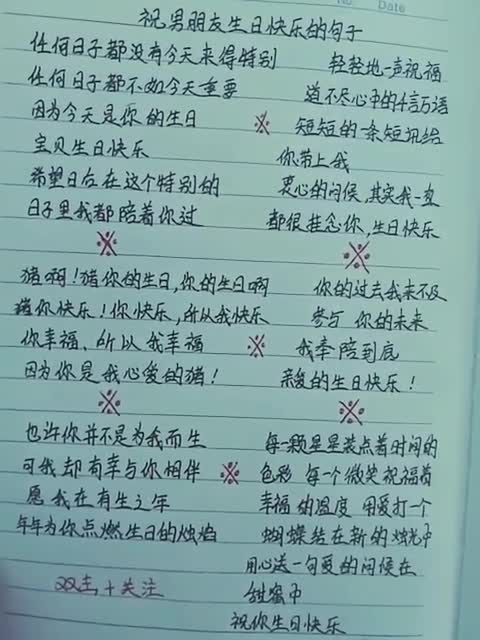 No.
Date
祝男朋友生日快乐的句子
任何日子都没有今天来得特别
任何日子都不如今天重要
因为今天是你的生日
宝贝生日快乐
希望日后在这个特别的
日子里我都陪着你过
轻轻地一声祝福
道不尽心中的千言万语
短短的一条短讯给
你带上我
衷心的问候,其实我一直
都很挂念你,生日快乐
猪啊!猪你的生日,你的生日啊
猪你快乐!你快乐,所以我快乐
你幸福、所以我幸福
因为你是我心爱的猪!
你的过去我来不及
参与 你的未来
我奉陪到底
亲爱的生日快乐!
也许你并不是为我而生
可我却有幸与你相伴
愿我在有生之年
年年为你点燃生日的烛焰
每一颗星星装点着时间的
色彩 每个微笑祝福着
幸福的温度 用爱打一个
蝴蝶结在新的烛光中
用心送一句爱的问候在
甜蜜中
祝你生日快乐
双击+关注